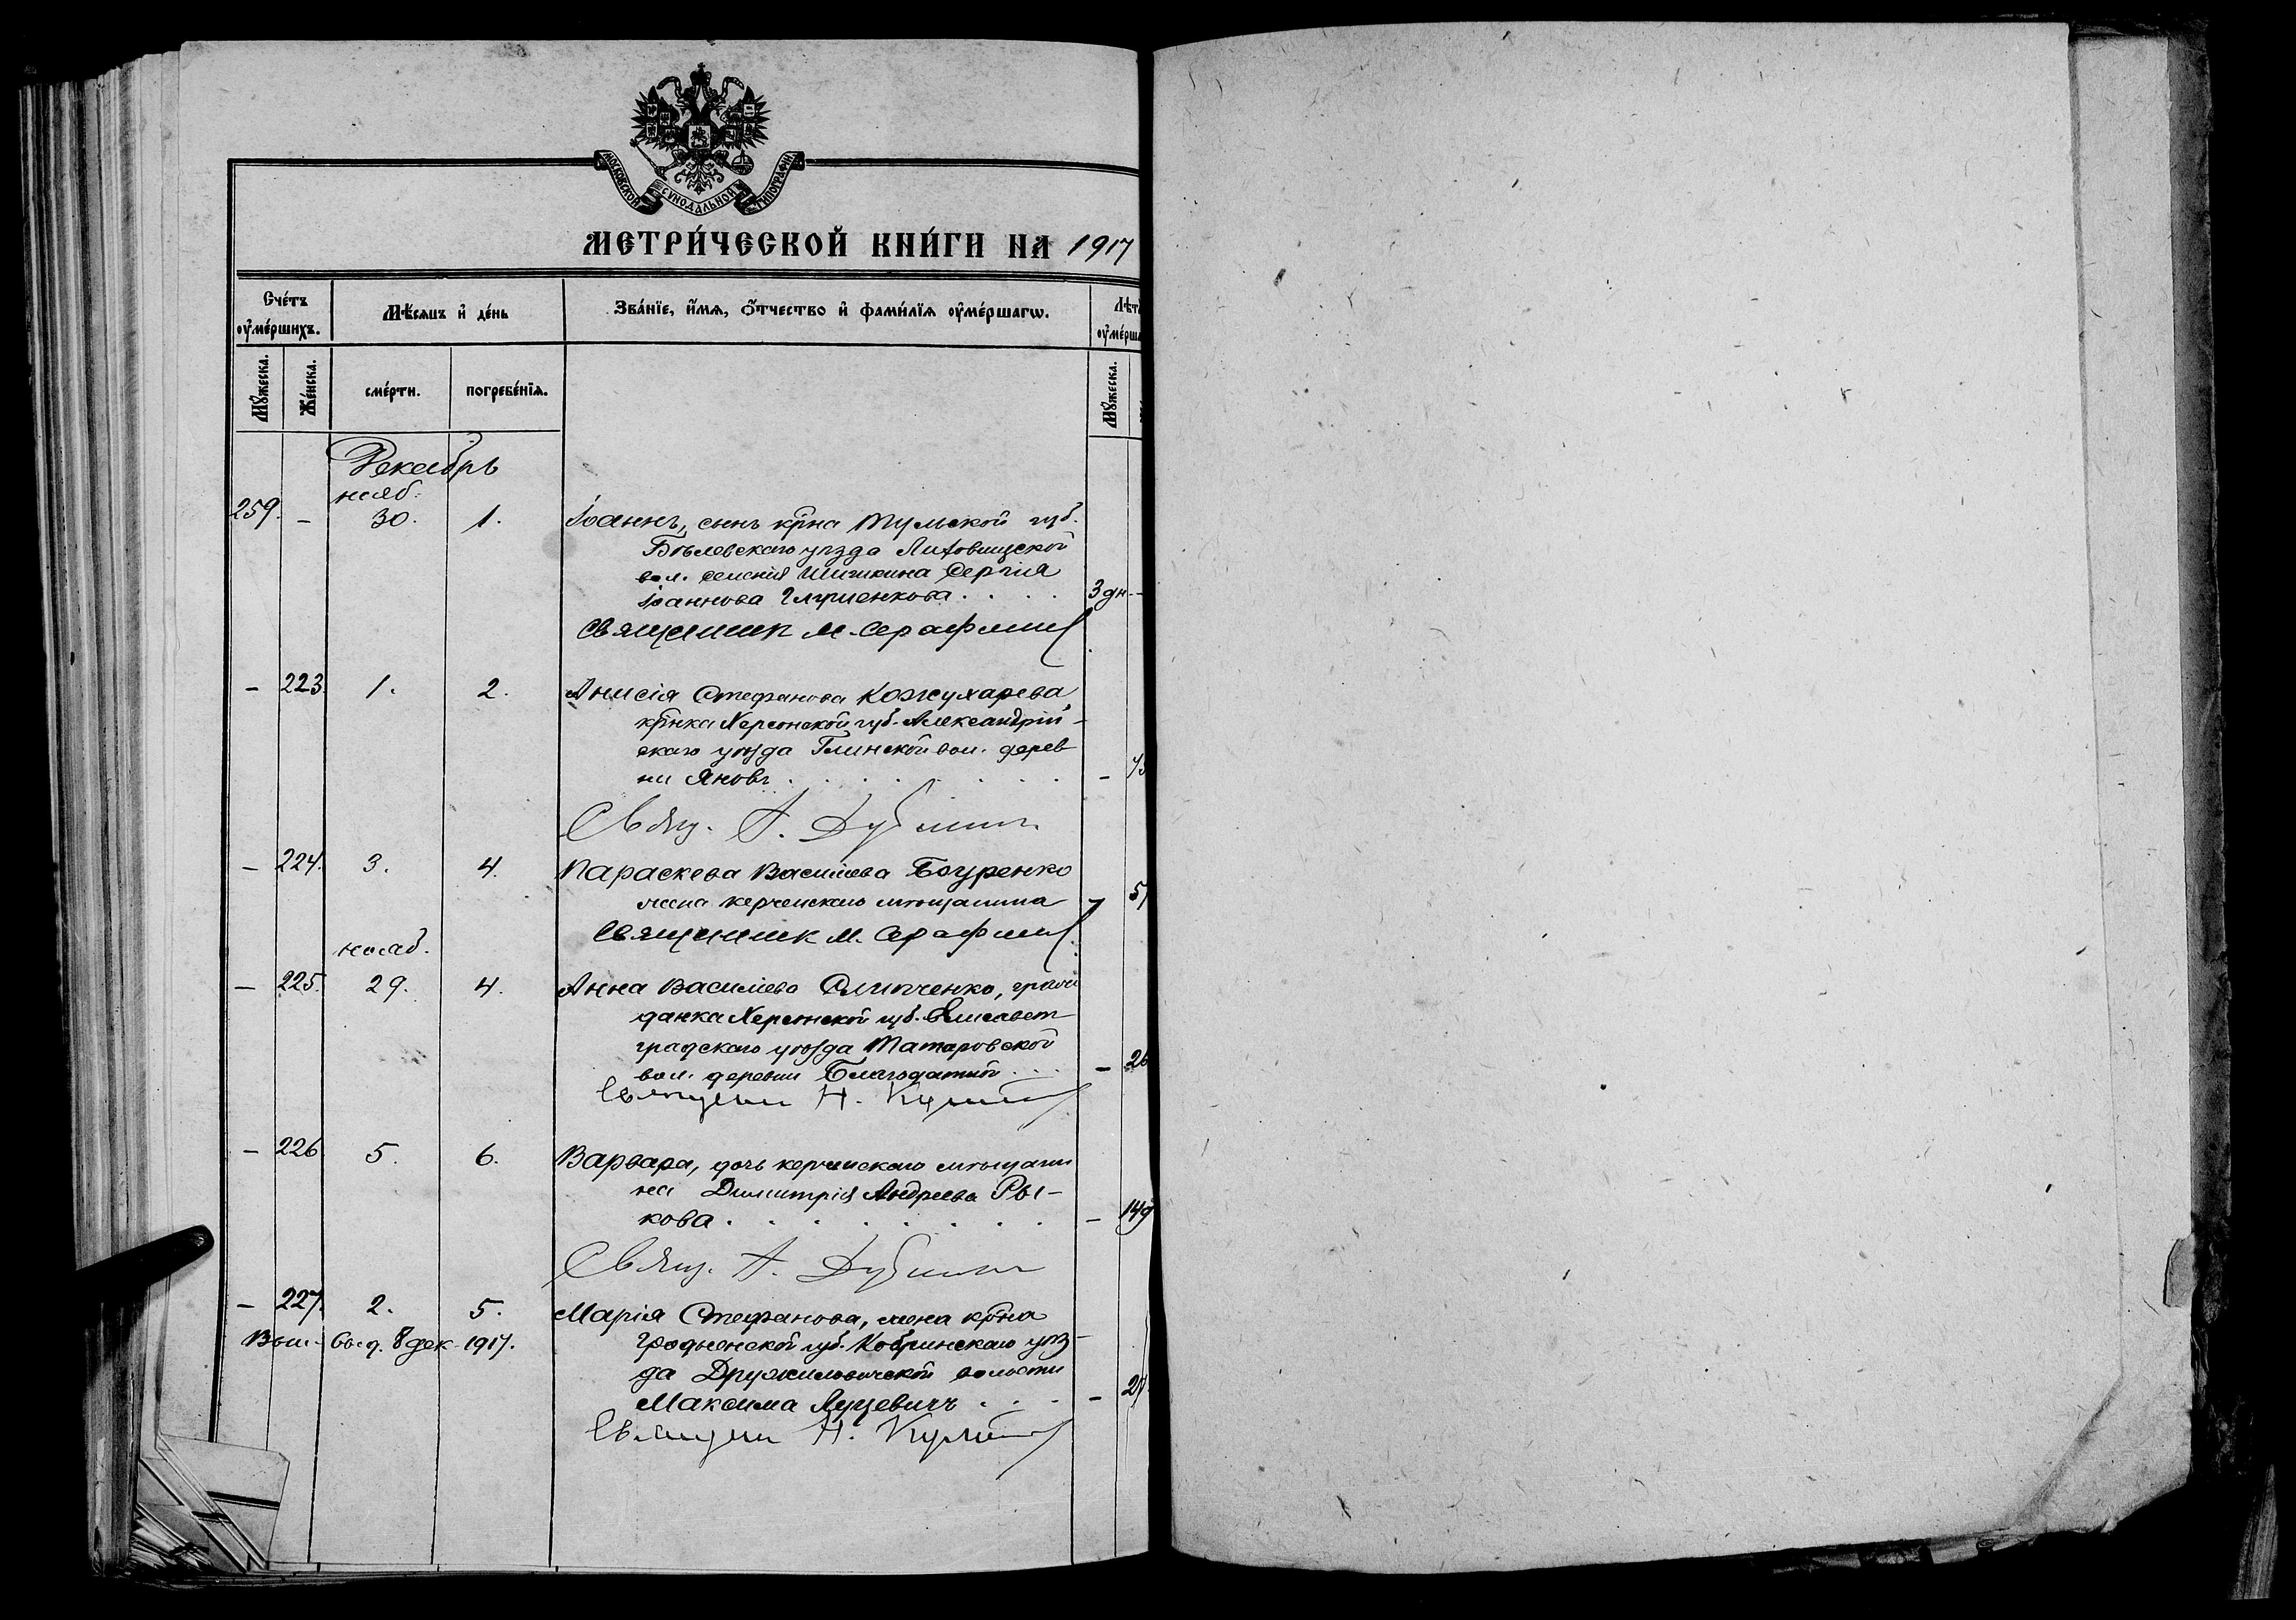 МОСКОВСКОЙ СѴНОДАЛЬНОЙ ТИПОГРАФІИ
МЕТРИ́ЧЕСКОЙ КНИ́ГИ НА 1917
Счéтъ ᲂу҆мéршихъ.
Мѣ́сяцъ и҆ дéнь
Звáнїе, и҆́мѧ, ѻ҆́тчество и҆ фами́лїѧ ᲂу҆мéршагѡ.
Лѣт
ᲂу҆мéрша
Мꙋ́жеска.
Жéнска.
смéрти.
погребéнїѧ.
Мꙋ́жеска.
Декабрь
нояб.
259. - 30. 1. Іоаннъ, сынъ кр-на Тульской губ.
Бѣлевскаго уѣзда Литовищской
вол. селенія Шишкина Сергія
Іоаннова Глушенкова . . . . 3 дн. -
Священник М. Серафимов
- 223. 1. 2. Анисія Стефанова Кожухарева,
кр-нка Херсонской губ. Александрій-
скаго уѣзда Глинской вол. дерев
ни Яновъ . . . . . . . -
Свящ. А. Дубинин
- 224. 3. 4. Параскева Василіева Боуренко
жена керченскаго мѣщанина
Священник М. Серафимов
нояб.
- 225. 29. 4. Анна Василіева Слипченко, граж
данка Херсонской губ. Елисавет
градскаго уѣзда Татаровской
вол. деревни Благодатной . . . - 26
Священник Н.
- 226 5. 6. Варвара, дочь керченскаго мѣщани
на Димитрія Андреева Ры-
кова . . . . . . . . - 14 д
Свящ. А. Дубинин
- 227. 2. 5. Марія Стефанова, жена кр-на
Вып. выд. 8 дек. 1917. Гродненской губ. Кобринскаго уѣз-
да Дружиловичской волости
Максима Луцевичъ . . . -
Священник Н.